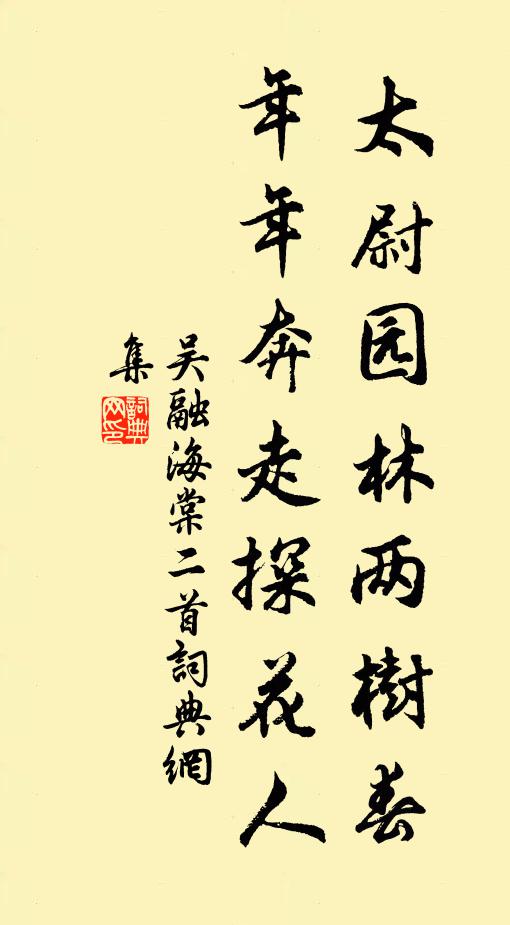 太尉园林两樹春
年年奔走探花人
吴融海棠二首詞典網
集
詞典
网印